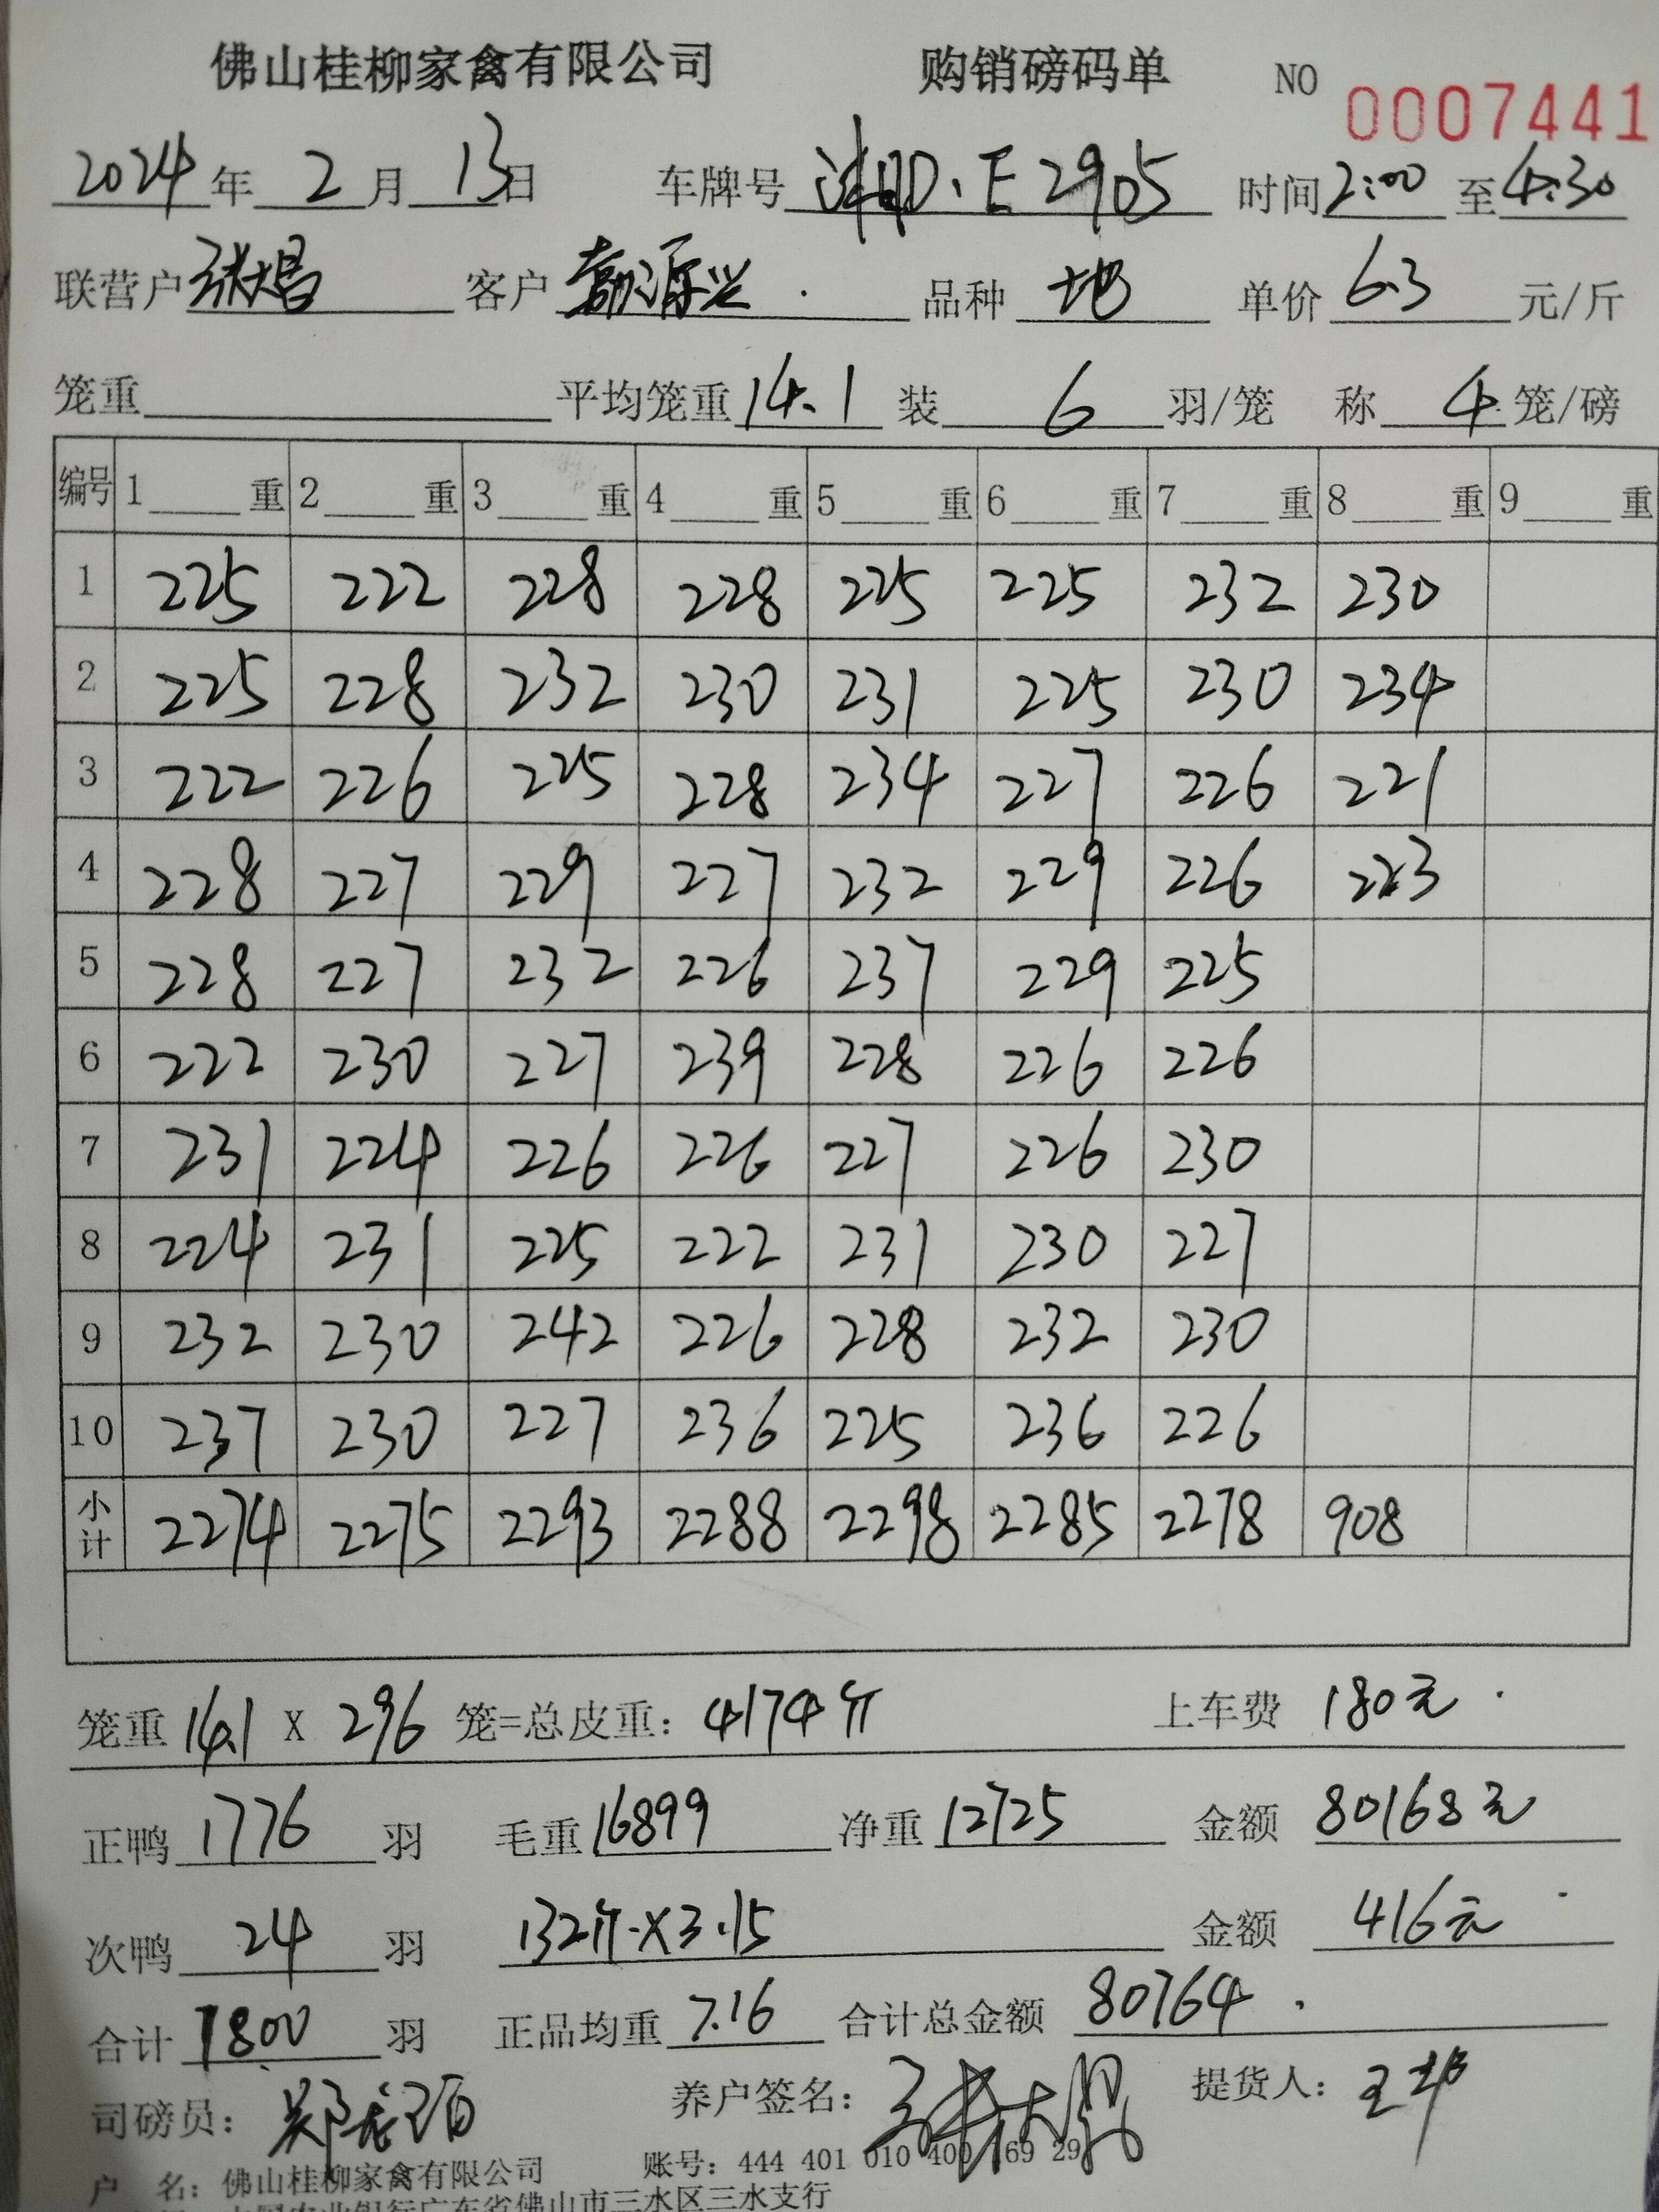 佛山桂柳家禽有限公司 购销磅码单 NO 0007441
2024年 2月 13日 车牌号 湘D·E2905 时间 2:00 至 4:30
联营户 张大昌 客户 源兴 品种 地 单价 6.3 元/斤
笼重 平均笼重 14.1 装 6 羽/笼 称 4 笼/磅
编号 1 重 2 重 3 重 4 重 5 重 6 重 7 重 8 重 9 重
1 225 222 228 228 225 225 232 230
2 225 228 232 230 231 225 230 234
3 222 226 225 228 234 227 226 221
4 228 227 229 227 232 229 226 223
5 228 227 232 226 237 229 225
6 222 230 227 239 228 226 226
7 231 224 226 226 227 226 230
8 224 231 225 222 231 230 227
9 232 230 242 226 228 232 230
10 237 230 227 236 225 236 226
小计 2274 2275 2293 2288 2298 2285 2278 908
笼重 14.1 X 296 笼=总皮重: 4174斤 上车费 180元
正鸭 1776 羽 毛重 16899 净重 12725 金额 80168元
次鸭 24 羽 132斤X3.15 金额 416元
合计 1800 羽 正品均重 7.16 合计总金额 80764
司磅员: 养户签名: 提货人:
户 名: 佛山桂柳家禽有限公司 账号: 444 401 010 400 169 29
广东省佛山市三水区三水支行